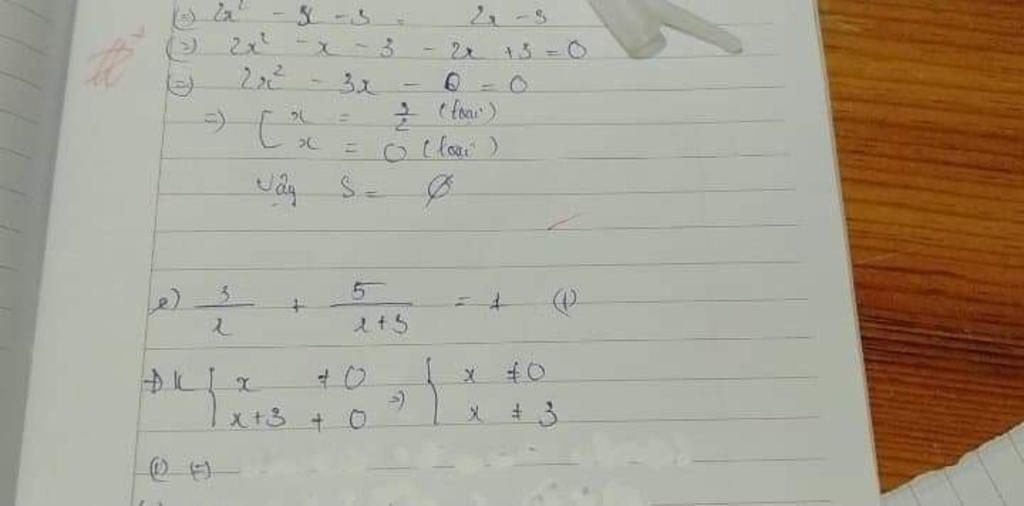 (=) 2x² - x - 3 = 2x - 3
(=) 2x² - x - 3 - 2x + 3 = 0
(=) 2x² - 3x - 0 = 0
=) [ x = 3/2 (loại)
x = 0 (loại)
Vậy S = ∅
e) 3/x + 5/x+3 = 1 (1)
ĐK { x ≠ 0 =) { x ≠ 0
x+3 ≠ 0 x ≠ 3
(1) (=)